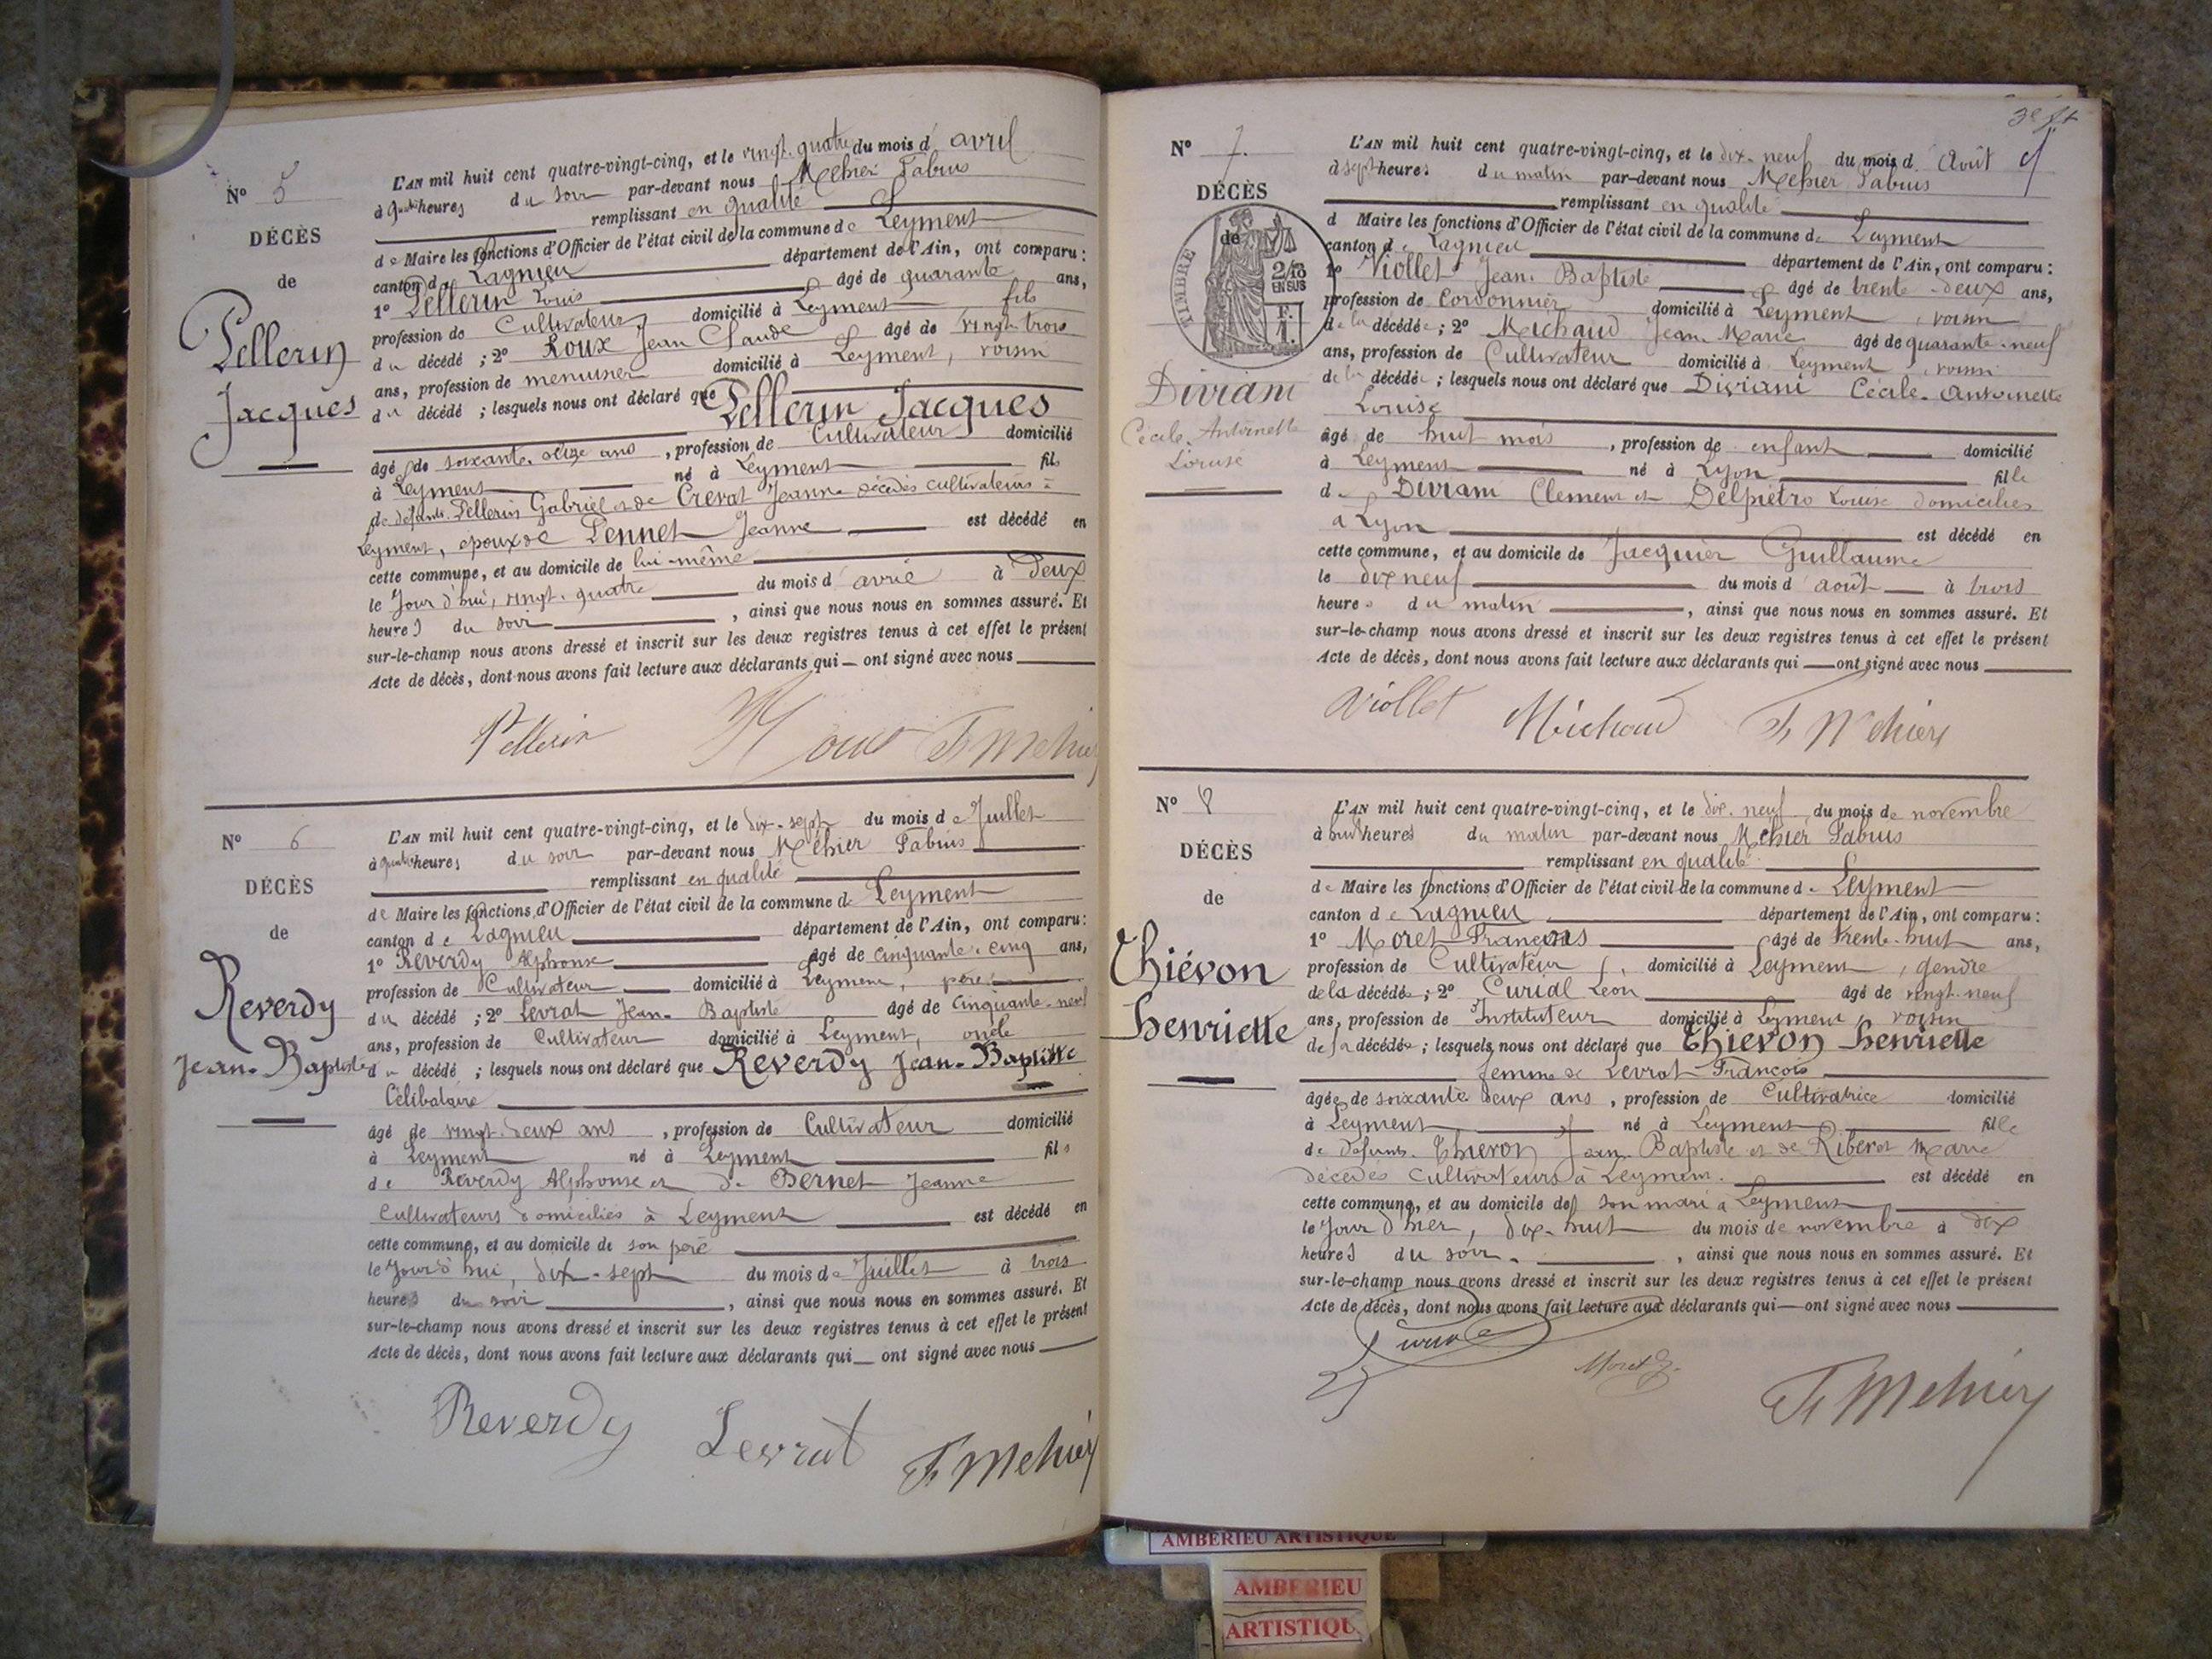 N° 5
DÉCÈS
de
Pellerin
Jacques
L'AN mil huit cent quatre-vingt-cinq, et le vingt-quatre du mois d'avril
à quatre heures du soir par-devant nous Mehier Fabius
remplissant en qualité
de Maire les fonctions d'Officier de l'état civil de la commune de Leyment
canton de Lagnieu département de l'Ain, ont comparu :
1° Pellerin Louis âgé de quarante ans,
profession de Cultivateur domicilié à Leyment fils
du décédé ; 2° Roux Jean Claude âgé de vingt-trois
ans, profession de menuisier domicilié à Leyment, voisin
du décédé ; lesquels nous ont déclaré que Pellerin Jacques
âgé de soixante-seize ans, profession de Cultivateur domicilié
à Leyment né à Leyment fils
de défunts Pellerin Gabriel et de Crevat Jeanne décédés cultivateurs à
Leyment, époux de Pennet Jeanne est décédé en
cette commune, et au domicile de lui-même
le Jour d'hui, vingt-quatre du mois d'avril à Deux
heures du soir, ainsi que nous nous en sommes assuré. Et
sur-le-champ nous avons dressé et inscrit sur les deux registres tenus à cet effet le présent
Acte de décès, dont nous avons fait lecture aux déclarants qui — ont signé avec nous
Pellerin Roux F. Mehier
N° 6
DÉCÈS
de
Reverdy
Jean-Baptiste
L'AN mil huit cent quatre-vingt-cinq, et le dix-sept du mois de Juillet
à quatre heures du soir par-devant nous Mehier Fabius
remplissant en qualité
de Maire les fonctions d'Officier de l'état civil de la commune de Leyment
canton de Lagnieu département de l'Ain, ont comparu :
1° Reverdy Alphonse âgé de cinquante-cinq ans,
profession de Cultivateur domicilié à Leyment, père
du décédé ; 2° Levrat Jean-Baptiste âgé de cinquante-neuf
ans, profession de Cultivateur domicilié à Leyment, oncle
du décédé ; lesquels nous ont déclaré que Reverdy Jean-Baptiste
Célibataire
âgé de vingt-deux ans, profession de Cultivateur domicilié
à Leyment né à Leyment fils
de Reverdy Alphonse et de Bernet Jeanne
Cultivateurs domiciliés à Leyment est décédé en
cette commune, et au domicile de son père
le Jour d'hui, dix-sept du mois de Juillet à trois
heures du soir, ainsi que nous nous en sommes assuré. Et
sur-le-champ nous avons dressé et inscrit sur les deux registres tenus à cet effet le présent
Acte de décès, dont nous avons fait lecture aux déclarants qui — ont signé avec nous
Reverdy Levrat F. Mehier
3e ft
N° 7
DÉCÈS
de
TIMBRE
2/10
EN SUS
F.
1.
Diviani
Cécile Antoinette
Louise
L'AN mil huit cent quatre-vingt-cinq, et le dix-neuf du mois d'Août
à sept heures du matin par-devant nous Mehier Fabius
remplissant en qualité
d Maire les fonctions d'Officier de l'état civil de la commune de Leyment
canton de Lagnieu département de l'Ain, ont comparu :
1° Viollet Jean-Baptiste âgé de trente-deux ans,
profession de Cordonnier domicilié à Leyment, voisin
de la décédée ; 2° Michaud Jean-Marie âgé de quarante-neuf
ans, profession de Cultivateur domicilié à Leyment, voisin
de la décédée ; lesquels nous ont déclaré que Diviani Cécile-Antoinette
Louise
âgé de huit mois, profession de enfant domicilié
à Leyment né à Lyon fille
de Diviani Clement et Delpiétro Louise domiciliés
à Lyon est décédé en
cette commune, et au domicile de Jacquier Guillaume
le dix neuf du mois d'août à trois
heures du matin, ainsi que nous nous en sommes assuré. Et
sur-le-champ nous avons dressé et inscrit sur les deux registres tenus à cet effet le présent
Acte de décès, dont nous avons fait lecture aux déclarants qui — ont signé avec nous
Viollet Michaud F. Mehier
N° 8
DÉCÈS
de
Thiévon
henriette
L'AN mil huit cent quatre-vingt-cinq, et le dix-neuf du mois de novembre
à huit heures du matin par-devant nous Mehier Fabius
remplissant en qualité
de Maire les fonctions d'Officier de l'état civil de la commune de Leyment
canton de Lagnieu département de l'Ain, ont comparu :
1° Moret François âgé de trente-huit ans,
profession de Cultivateur, domicilié à Leyment, gendre
de la décédée ; 2° Curial Léon âgé de vingt-neuf
ans, profession de Instituteur domicilié à Leyment, voisin
de la décédée ; lesquels nous ont déclaré que Thievon henriette
femme de Levrat François
âgée de soixante deux ans, profession de Cultivatrice domicilié
à Leyment né à Leyment fille
de défunts Thievon Jean-Baptiste et de Riberot Marie
décédés Cultivateurs à Leyment. est décédé en
cette commune, et au domicile de son mari à Leyment
le Jour d'hier, dix-huit du mois de novembre à dix
heures du soir, ainsi que nous nous en sommes assuré. Et
sur-le-champ nous avons dressé et inscrit sur les deux registres tenus à cet effet le présent
Acte de décès, dont nous avons fait lecture aux déclarants qui — ont signé avec nous
Curial Moret F. Mehier
AMBERIEU ARTISTIQUE
AMBERIEU
ARTISTIQU